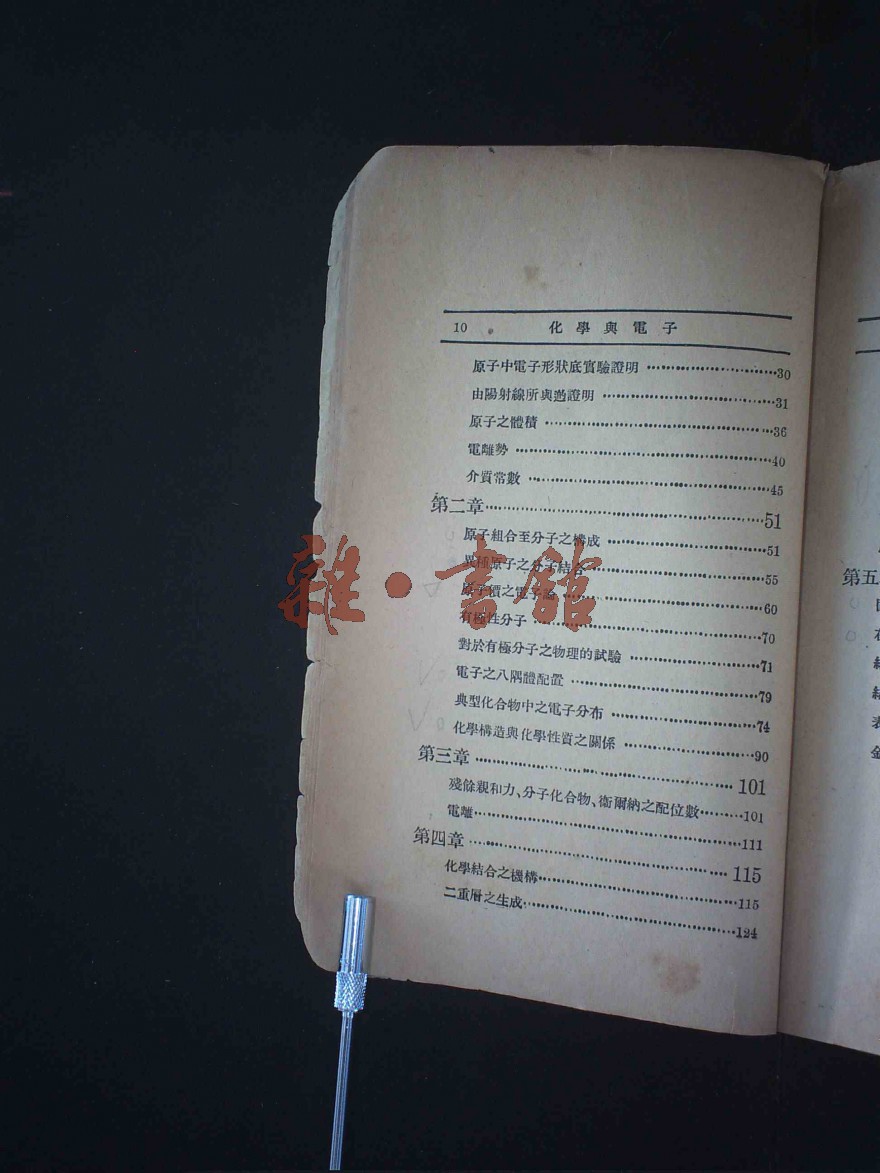 10 化學與電子
原子中電子形狀底實驗證明……30
由陽射線所與過證明……31
原子之體積……36
電離勢……40
介質常數……45
第二章……51
原子組合至分子之構成……51
異種原子之分子結合……55
原子價之電子論……60
有極性分子……70
對於有極分子之物理的試驗……71
電子之八隅體配置……79
典型化合物中之電子分布……74
化學構造與化學性質之關係……90
第三章……101
殘餘親和力、分子化合物、衞爾納之配位數……101
電離……111
第四章……115
化學結合之機構……115
二重層之生成……124
雜·書館
第五